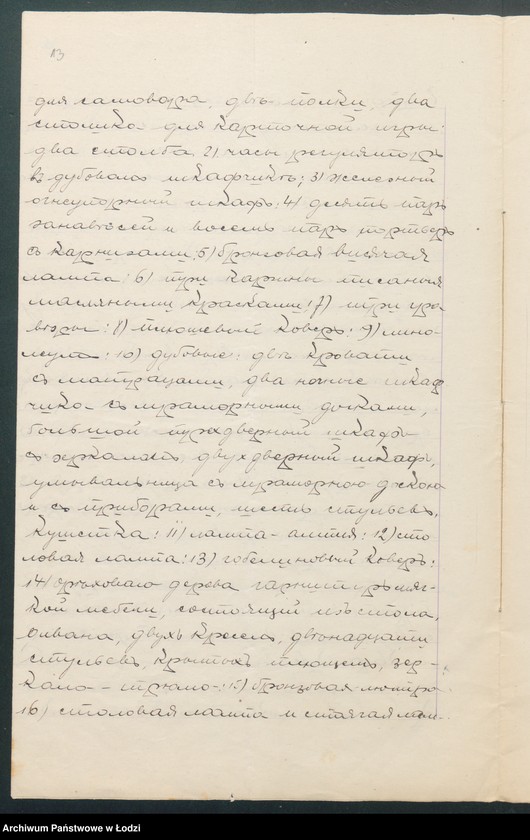 113
для самовара, двѣ полки, два
столика для карточной игры
два столба 2) часы регуляторъ
въ дубовомъ шкафчикѣ; 3) желѣзный
огнеупорный шкафъ: 4) десять паръ
занавѣсей и восемь паръ портьеръ
съ карнизами: 5) бронзовая висячая
лампа: 6) три картины писаныя
масляными красками: 7) три гра-
вюры: 8) плюшевый коверъ: 9) лино-
леумъ: 10) дубовые: двѣ кровати
съ матрацами, два ночные шкаф
чика съ мраморными досками,
большой трехдверный шкафъ
съ зркаломъ, двухдверный шкафъ,
умывальница съ мраморною доскою
и съ приборами, шесть стульевъ,
кушетка: 11) лампа-ампля: 12) сто
ловая лампа: 13) гобелиновый коверъ:
14) орѣховаго дерева гарнитуръ мяг-
кой мебели, состоящій изъ стола,
дивана, двухъ креселъ, двѣнадцати
стульевъ, крытыхъ плюшемъ, зер-
кало-трюмо: 15) бронзовая люстра
16) столовая лампа и стоячая лам-
Archiwum Państwowe w Łodzi